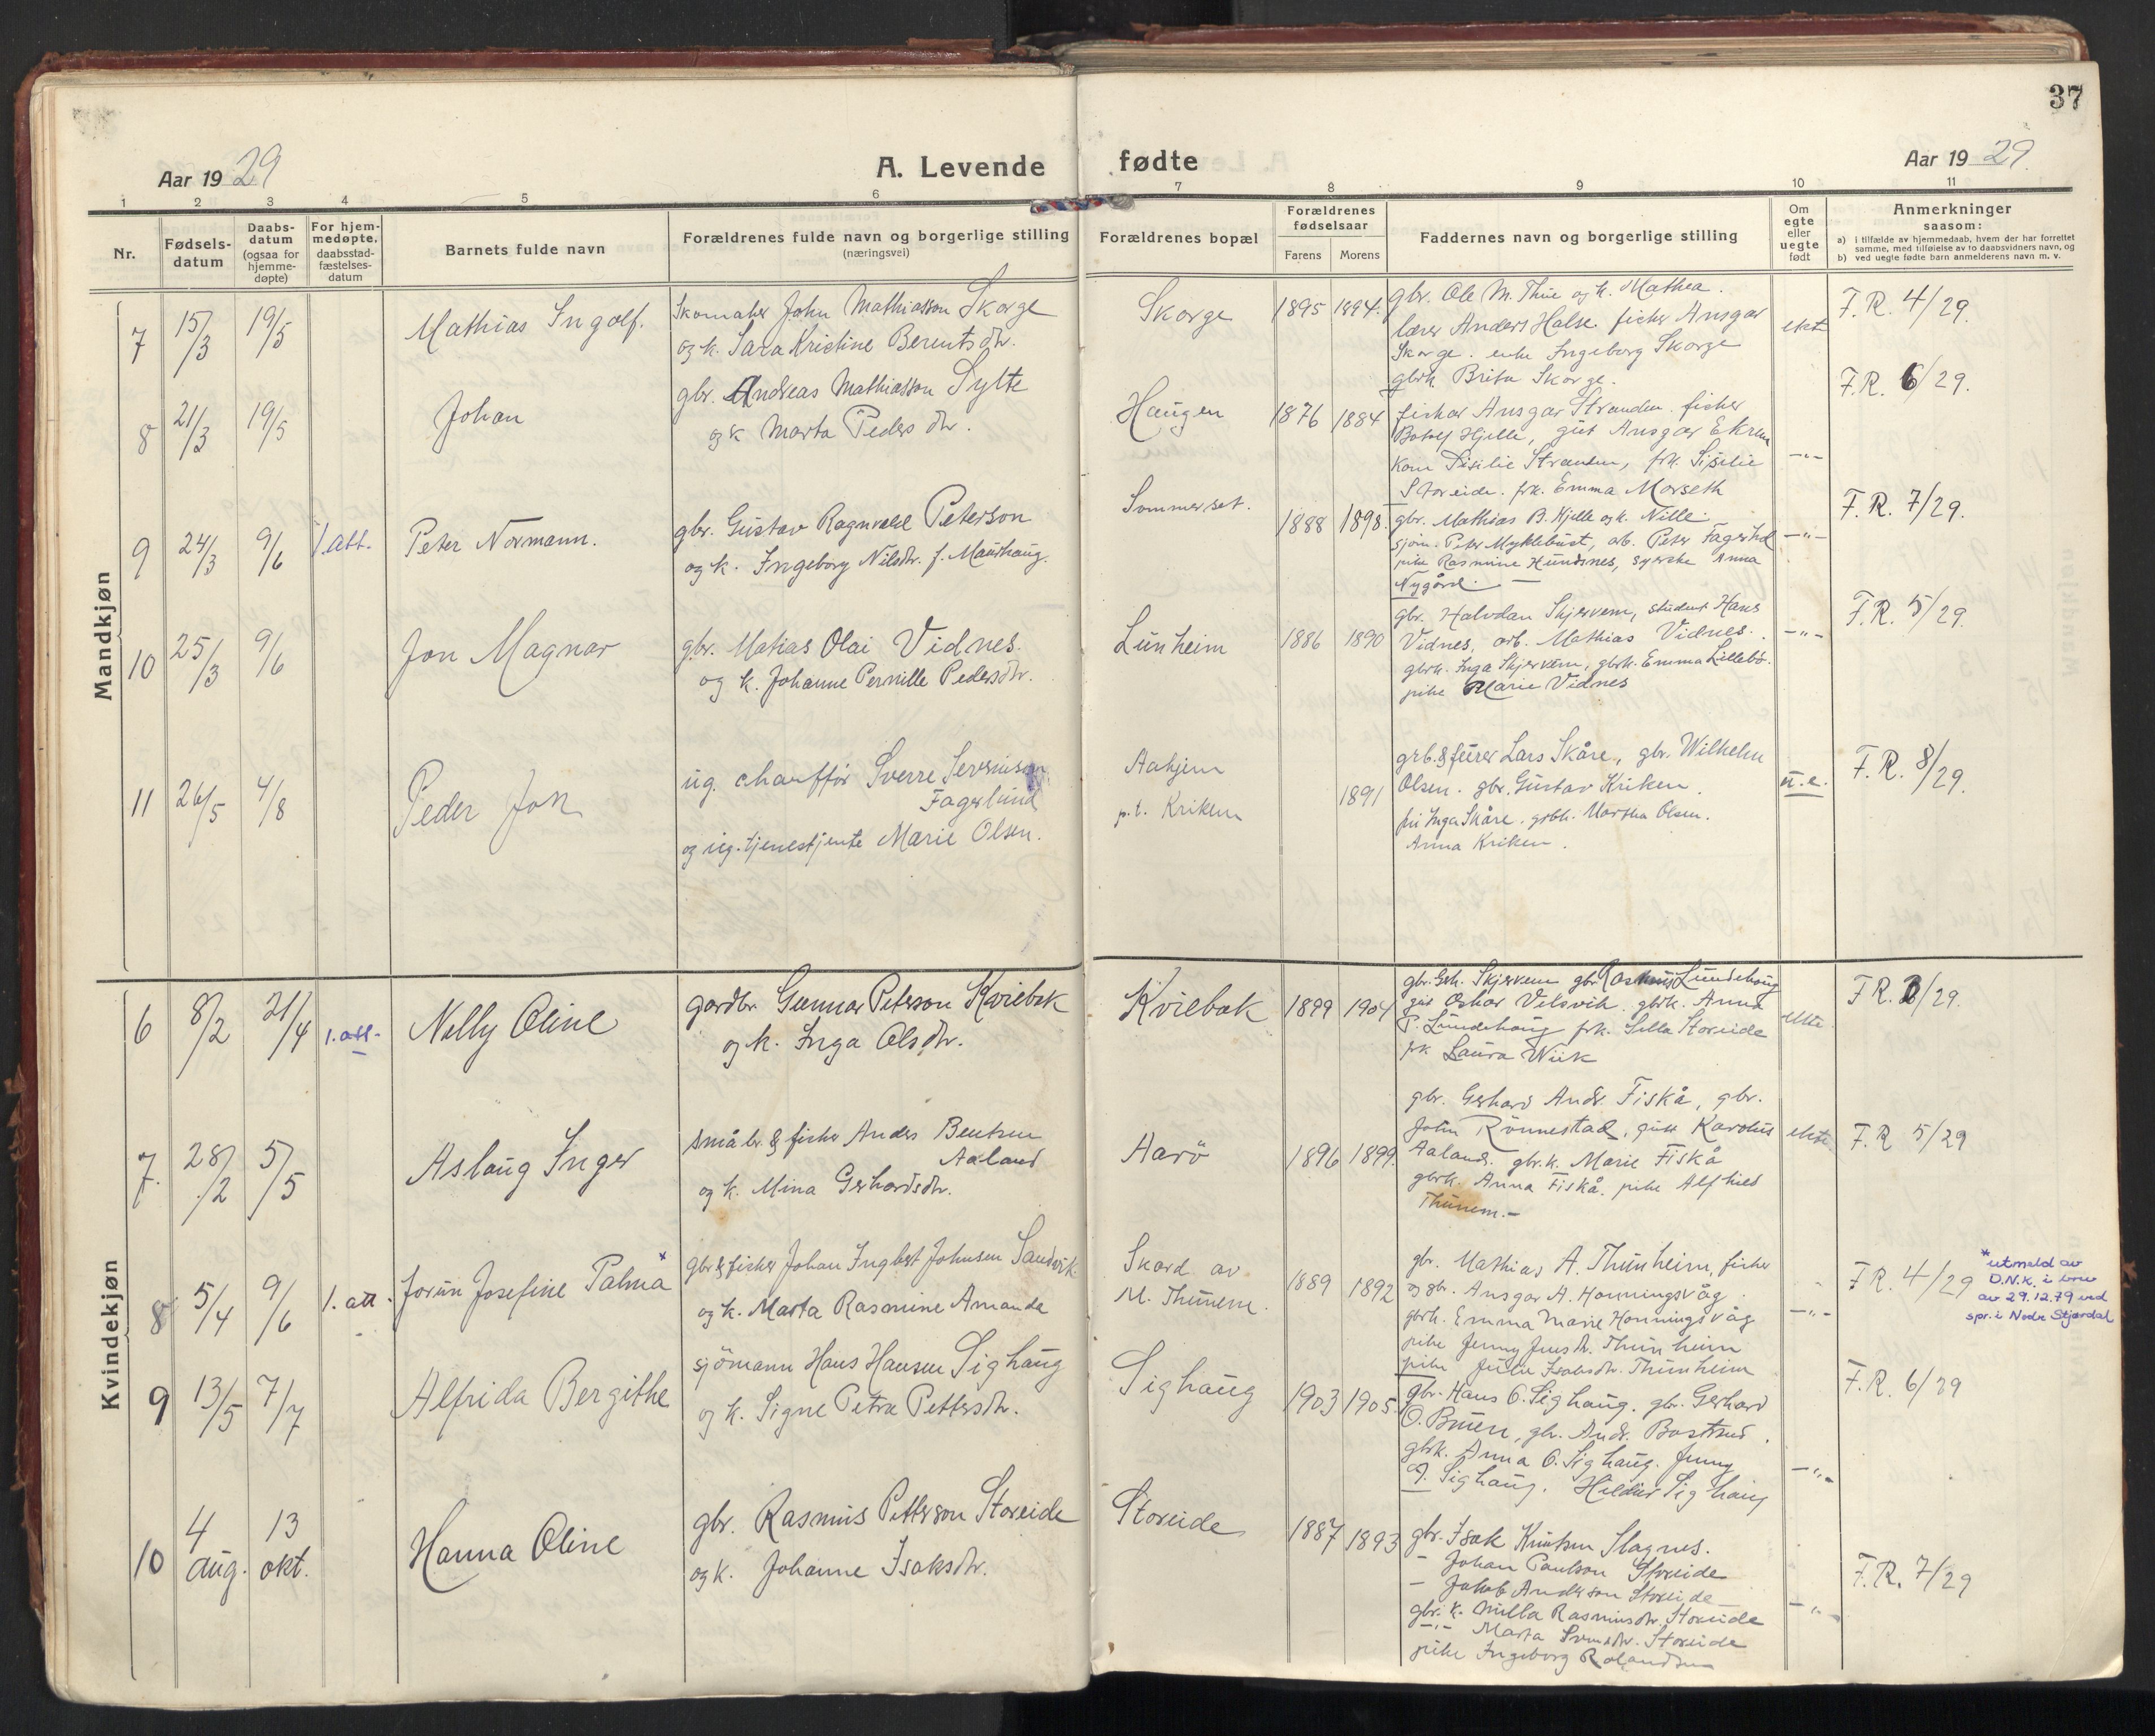 37
Aar 1929
A. Levende fødte
Aar 1929.
1 2 3 4 5 6 7 8 9 10 11
Nr.
Fødsels-
datum
Daabs-
datum
(ogsaa for
hjemme-
døpte)
For hjem-
medøpte.
daabsstad-
fæstelses-
datum
Barnets fulde navn
Forældrenes fulde navn og borgerlige stilling
(næringsvei)
Forældrenes bopæl
Forældrenes
fødselsaar
Farens Morens
Faddernes navn og borgerlige stilling
Om
egte
eller
uegte
født
Anmerkninger
saasom:
a) i tilfælde av hjemmedaab, hvem der har forrettet
samme, med tilføielse av to daabsvidners navn, og
b) ved uegte fødte barn anmelderens navn m. v.
Mandkjøn
7 15/3 19/5 Mathias Ingolf.
Skomaker John Mathiasson Skorge
og k. Sara Kristine Berentsdtr.
Skorge 1895 1894.
gbr. Ole M. Thue og k. Mathea.
lærer Anders Halse. fisker Ansgar
Skorge. enke Ingeborg Skorge
gbrk. Brita Skorge.
ekt
F.R. 4/29.
8 21/3 19/5 Johan
gbr. Andreas Mathiasson Sylte
og k Marta Pedersdtr.
Haugen 1876 1884
fisker Ansgar Stranden. fisker
Botolf Hjelle, gut Ansgar Ekrem
Kone Sisilie Stranden, frk. Siselie
Storeide. frk. Emma Morseth
-"-
F.R. 6/29.
9 24/3 9/6 1. att. Peter Normann.
gbr. Gustav Ragnvald Peterson
og k. Ingeborg Nilsdtr. f. Maurhaug.
Sommerset. 1888 1898.
gbr. Mathias B. Hjelle og k. Nille.
sjøm. Peter Myklebust, arb. Peter Fagerhol
pike Rasmine Hundsnes, syerske Anna
Nygård.
-"-
F.R. 7/29.
10 25/3 9/6 Jon Magnar
gbr. Matias Olai Vidnes.
og k. Johanne Pernille Pedersdtr.
Lunheim 1886 1890
gbr. Halvdan Skjervem, student Hans
Vidnes, arb. Mathias Vidnes.
gbrk. Inga Skjervem, gbrk. Emma Lillebø.
pike Marie Vidnes
-"-
F.R. 5/29.
11 26/5 4/8 Peder Jon
ug. chauffør Sverre Severinson
Fagerlund
og ug. tjenestjente Marie Olsen.
Aahjem
p.t. Kriken
1891
grb. & feier Lars Skåre, gbr. Wilhelm
Olsen. gbr. Gustav Kriken.
fru Inga Skåre. grbk. Martha Olsen.
Anna Kriken.
u.e.
F.R. 8/29.
Kvindekjøn
6 8/2 21/4 1. att. Nelly Oline
gardbr. Gunnar Peterson Kviebak
og k. Inga Olsdtr.
Kviebak 1899 1904
gbr. Gerh. Skjervem gbr Rasmus Lundehaug
gut Oskar Velsvik. gbrk. Anna
P. Lundehaug frk. Silla Storeide
frk Laura Wiik
ekte.
F.R. 3/29.
7. 28/2 5/5 Aslaug Inger
småbr. & fisker Anders Bentsen
Aaland
og k. Mina Gerhardsdtr.
Harö 1896 1899.
gbr. Gerhard Andr. Fiskå, gbr.
John Rönnestad, gutt Karolus
Aaland. gbr.k. Marie Fiskå
gbrk. Anna Fiskå. pike Alfhild
Thunem.-
ekte
F.R 5/29
8 5/4 9/6 1. att. Jorun Josefine Palma*
gbr & fisker Johan Ingbert Johnsen Sandvik
og k. Marta Rasmine Amanda
Skard av
M. Thunem. 1889 1892
gbr. Mathias A. Thunheim, fisker
og gbr. Ansgar A. Honningsvåg
gbrk. Emma Marie Honningsvåg
pike Jenny Jensdtr. Thunheim
pike Julie Isaksdtr. Thunheim
-"-
F.R. 4/29
*utmeld av
D.N.K. i brev
av 29.12.79 ved
spr. i Nedre Stjørdal
9 13/5 7/7 Alfrida Bergithe
sjömann Hans Hansen Sighaug
og k. Signe Petra Pettersdtr.
Sighaug 1903 1905.
gbr. Hans O. Sighaug. gbr. Gerhard
O. Bruen, gbr. Andr. Bastrud.
gbrk. Anna O. Sighaug. Jenny
J. Sighaug. Hildur Sighaug
-"-
F.R. 6/29
10 4 aug. 13 okt. Hanna Oline
gbr. Rasmus Petterson Storeide
og k. Johanne Isaksdtr.
Storeide 1887 1893
gbr. Isak Knutsen Slagnes.
- Johan Paulson Storeide
- Jakob Anderson Storeide
gbr. k. Milla Rasmusdtr. Storeide
-"- Marta Svensdtr. Storeide
pike Ingeborg Rolandsen
-"-
F.R. 7/29